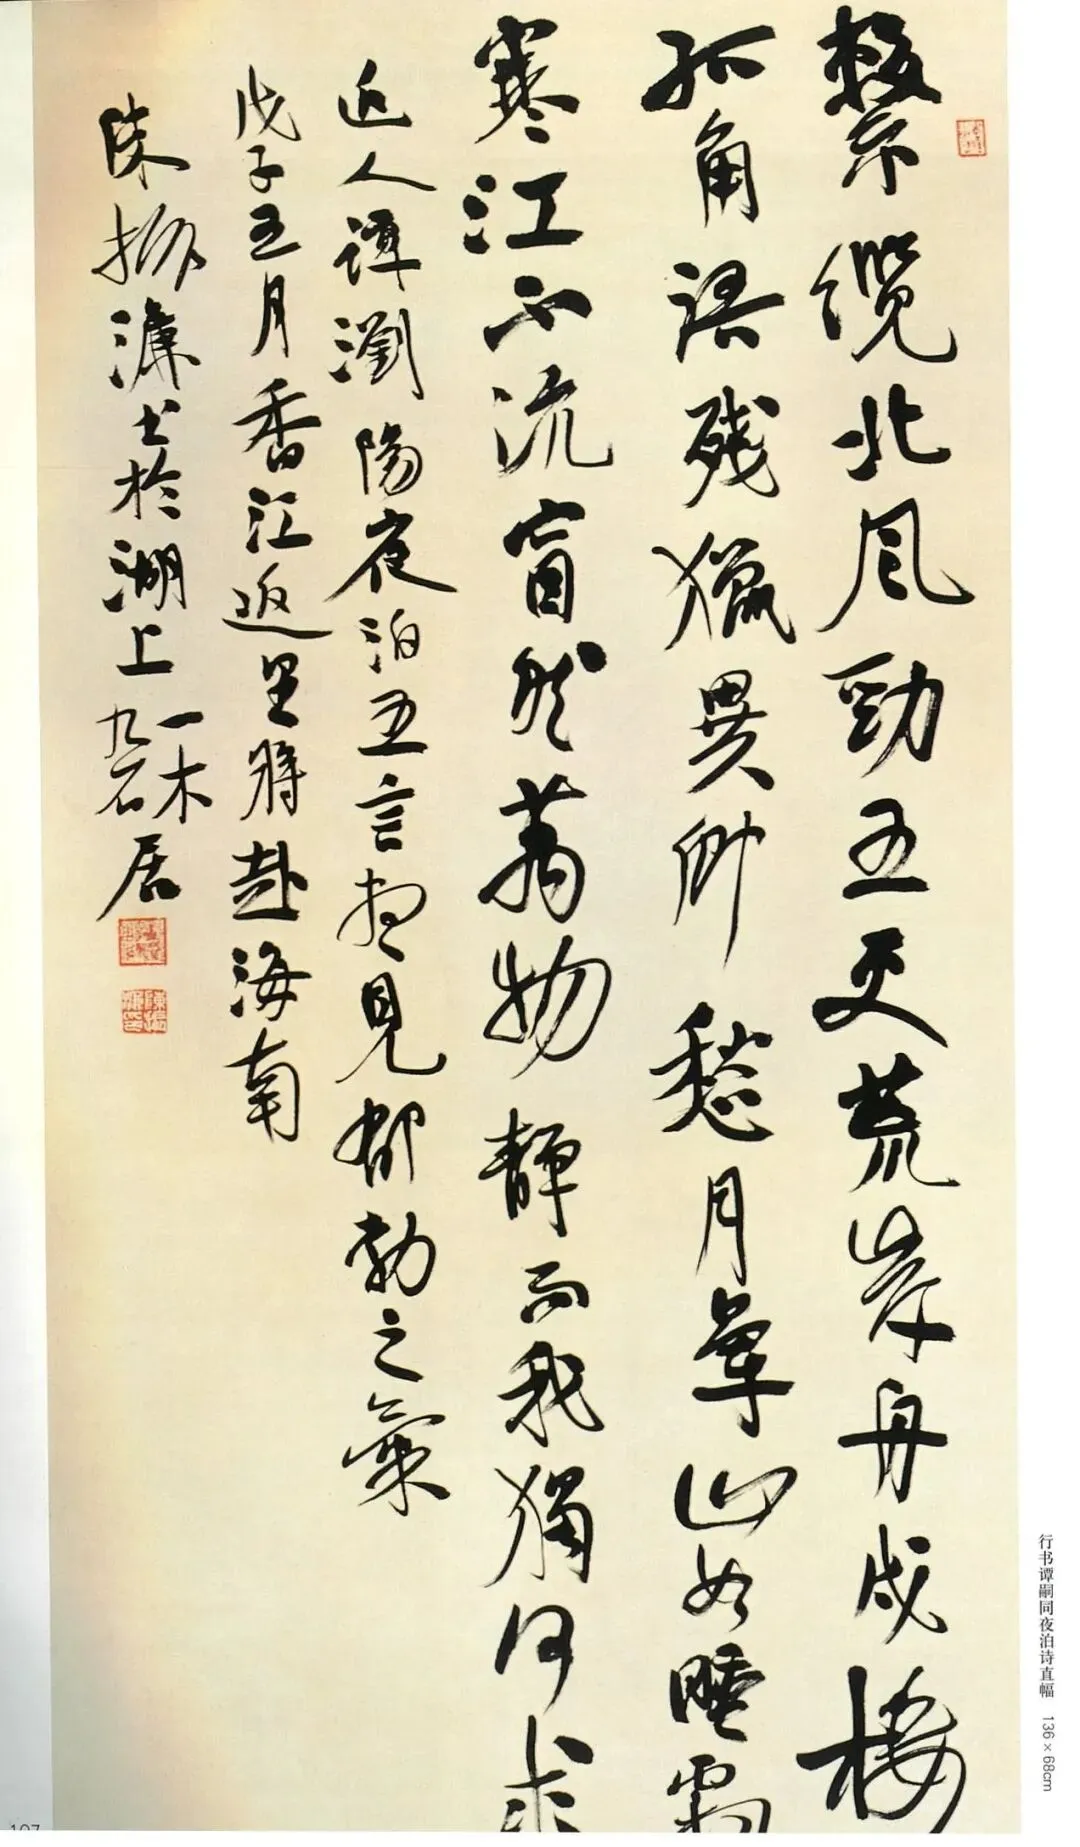 繫纜北風勁五更荒岸舟戍樓
孤角語残獵異鄉愁月暈山如睡霜
寒江不流窅然萬物静而我獨何求
近人譚瀏陽夜泊五言想見郁勃之氣
戊子五月香江返里將赴海南
陳振濂書於湖上一木九石居
行书谭嗣同夜泊诗直幅 136×68cm